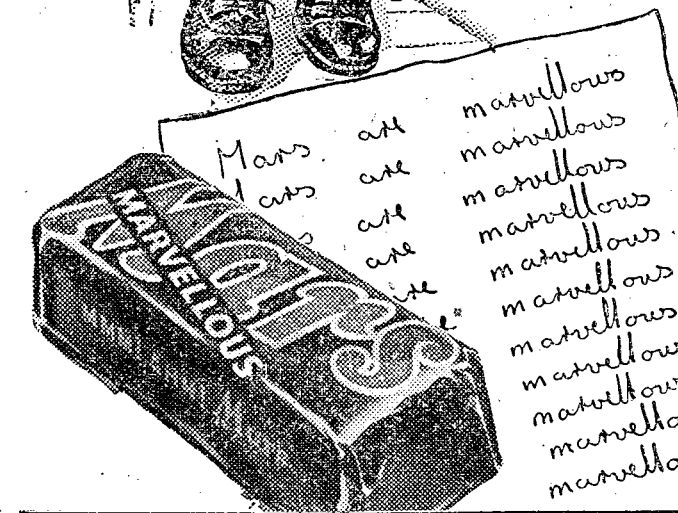 Mars are marvellous
ars are marvellous
s are marvellous
are marvellous
re marvellous.
e marvellous
marvellous
marvellou
marvellou
marvello
marvello
Mars
MARVELLOUS